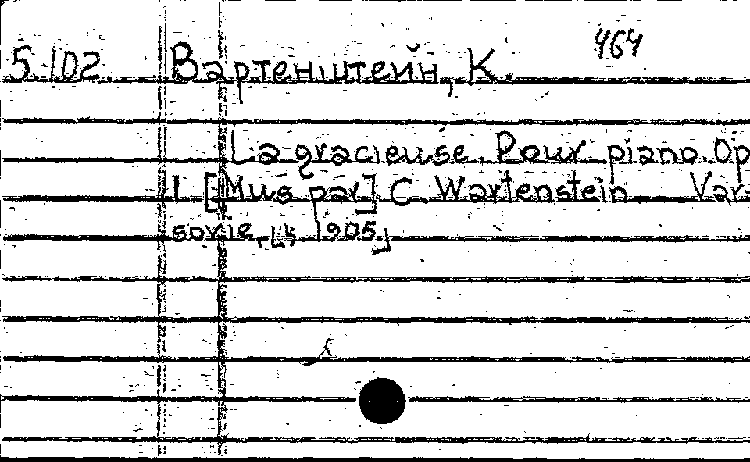 464
5 102 Вартенштейн, К.
La gracieuse. Pour piano. Op
1 [Mus par] C. Wartenstein Var-
sovie, 1905.]